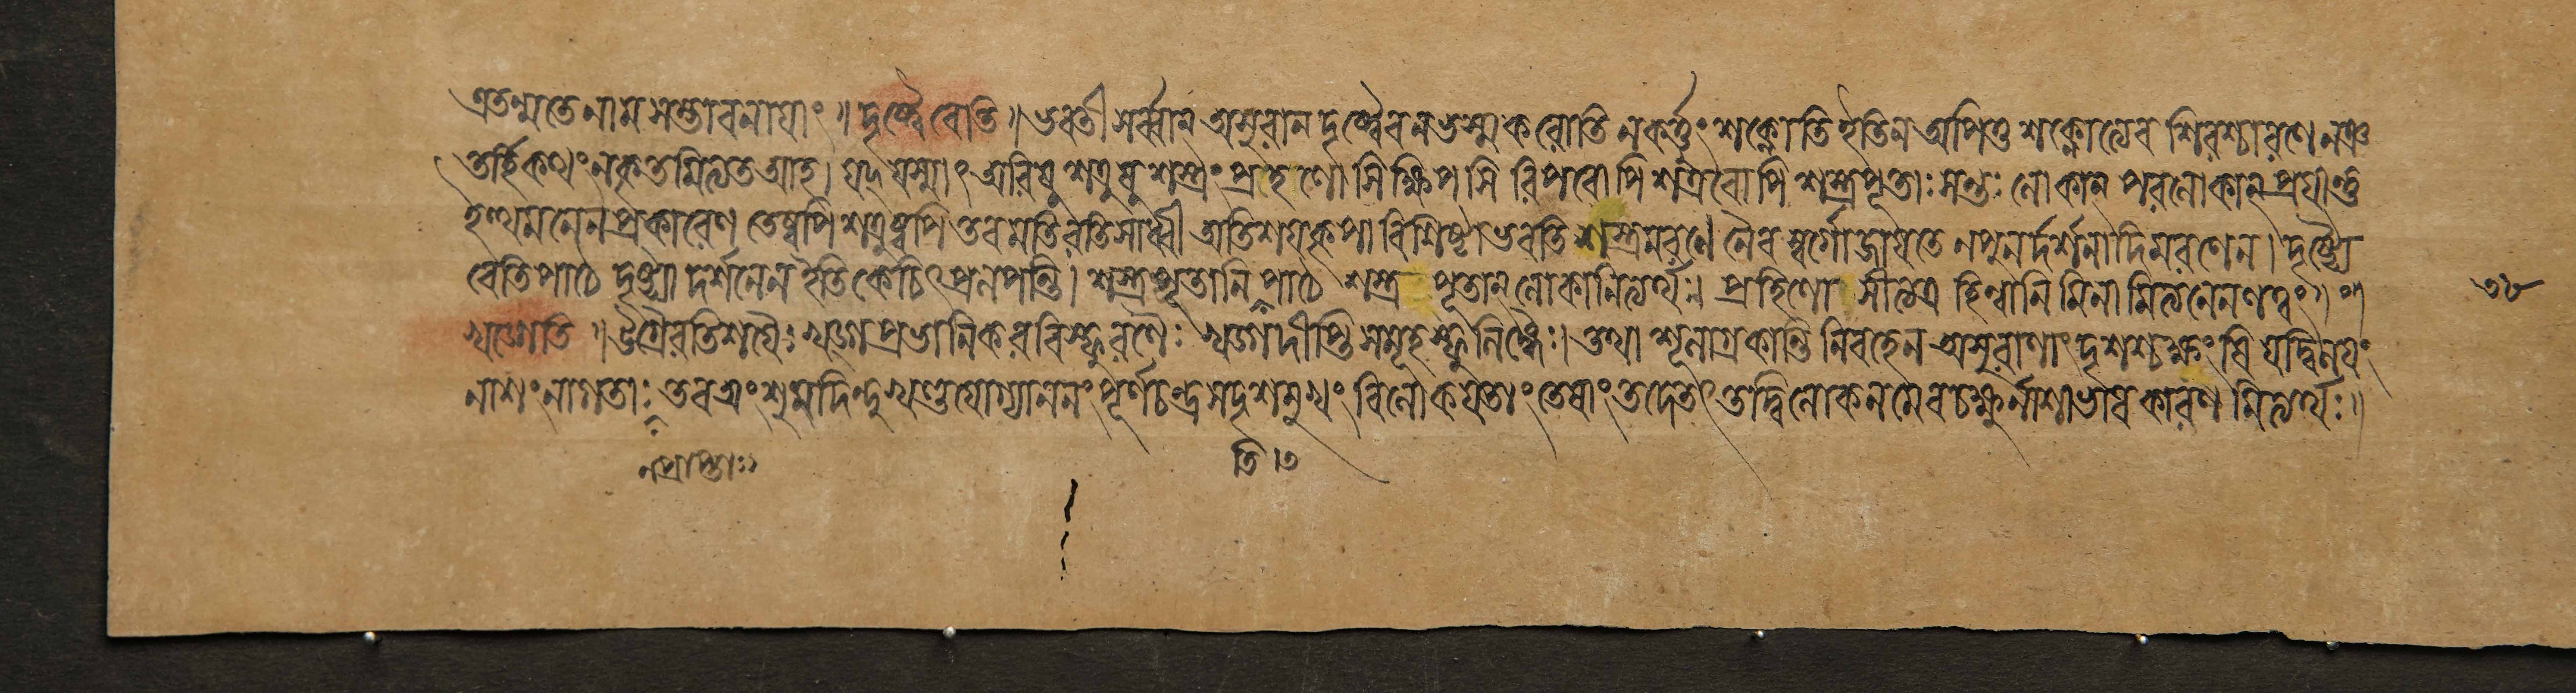 এতন্মতে নাম সম্ভাবনায়াং ॥ দৃষ্ট্বৈবেতি ॥ ভবতী সর্ব্বান অসুরান দৃষ্ট্বৈব ন ভস্ম করোতি ন কর্ত্তুং শক্নোতি ইতি ন অপিতু শক্নোত্যেব
তর্হি কথং ন কৃতমিত্যত আহ । যদ্ যস্মাৎ অরিষু শত্রুষু শস্ত্রং প্রহিণোসি ক্ষিপসি রিপবোপি শত্রবোপি শস্ত্রপূতাঃ সন্তঃ লোকান পরলোকান্ প্রয়ান্তু
ইত্থমনেন প্রকারেণ তেষ্বপি শত্রুষ্বপি তব মতিরতিসাধ্বী অতিশয়কৃপাবিশিষ্টা ভবতি শস্ত্রমরণে নৈব স্বর্গো জায়তে ন পুনর্দর্শনাদিমরণেন । দৃষ্ট্যৈ
বেতি পাঠে দৃষ্ট্যা দর্শনেন ইতি কেচিৎ প্রলপন্তি । শস্ত্রপূতানি পাঠে শস্ত্র পূতান্ লোকানিত্যর্থঃ । প্রহিণোসীত্যত্র হিন্বানি মিনা মিত্যনেন ণত্বং ॥ ২০
খড়্গেতি ॥ উগ্রৈরতিশয়ৈঃ খড়্গপ্রভানিকরবিস্ফুরণৈঃ খড়্গদীপ্তিসমূহস্ফুলিঙ্গৈঃ । তথা শূলাগ্রকান্তিনিবহেন অসুরাণাং দৃশশ্চক্ষুংষি যদ্বিলয়ং
নাশং নাগতাঃ তব অংশুমদিন্দুখণ্ডযোগ্যাননং পূর্ণচন্দ্রসদৃশমুখং বিলোকয়তাং তেষাং তদেতৎ তদ্বিলোকনমেব চক্ষুর্নাশাভাব কারণমিত্যর্থঃ ॥
ন প্রাপ্তাঃ
তি । ৩